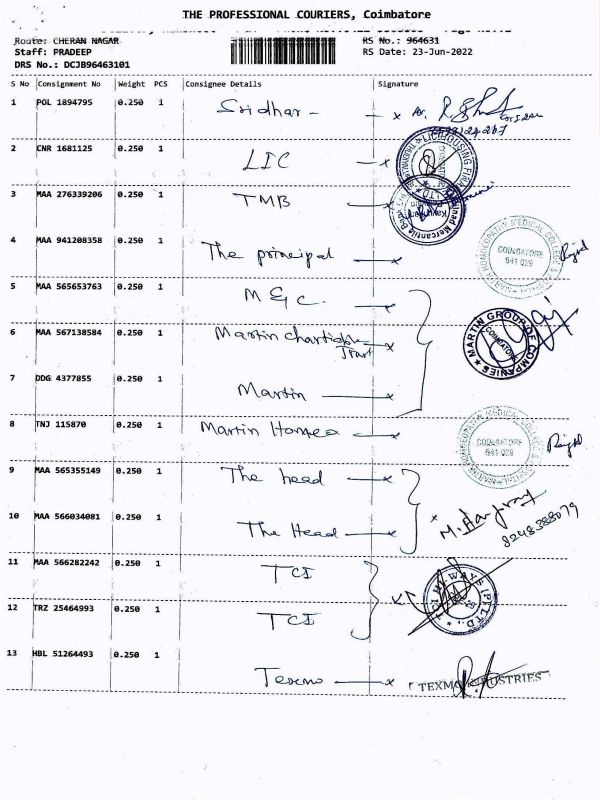 THE PROFESSIONAL COURIERS, Coimbatore
Route: CHERAN NAGAR RS No.: 964631
Staff: PRADEEP RS Date: 23-Jun-2022
DRS No.: DCJB96463101
S No Consignment No Weight PCS Consignee Details Signature
1 POL 1894795 0.250 1 Sridhar -
2 CNR 1681125 0.250 1 LIC
3 MAA 276339206 0.250 1 TMB
4 MAA 941208358 0.250 1 The principal
COIMBATORE
641 028
5 MAA 565653763 0.250 1 M G C.
6 MAA 567138584 0.250 1 Martin
Trust
MARTIN GROUP OF COMPANIES
COIMBATORE
7 DDG 4377855 0.250 1 Martin
8 TNJ 115870 0.250 1 Martin
COIMBATORE
641 028
9 MAA 565355149 0.250 1 The head
10 MAA 566034081 0.250 1 The Head
8248388079
11 MAA 566282242 0.250 1 TCI
12 TRZ 25464993 0.250 1 TCI
13 HBL 51264493 0.250 1 Texmo
TEXMO INDUSTRIES